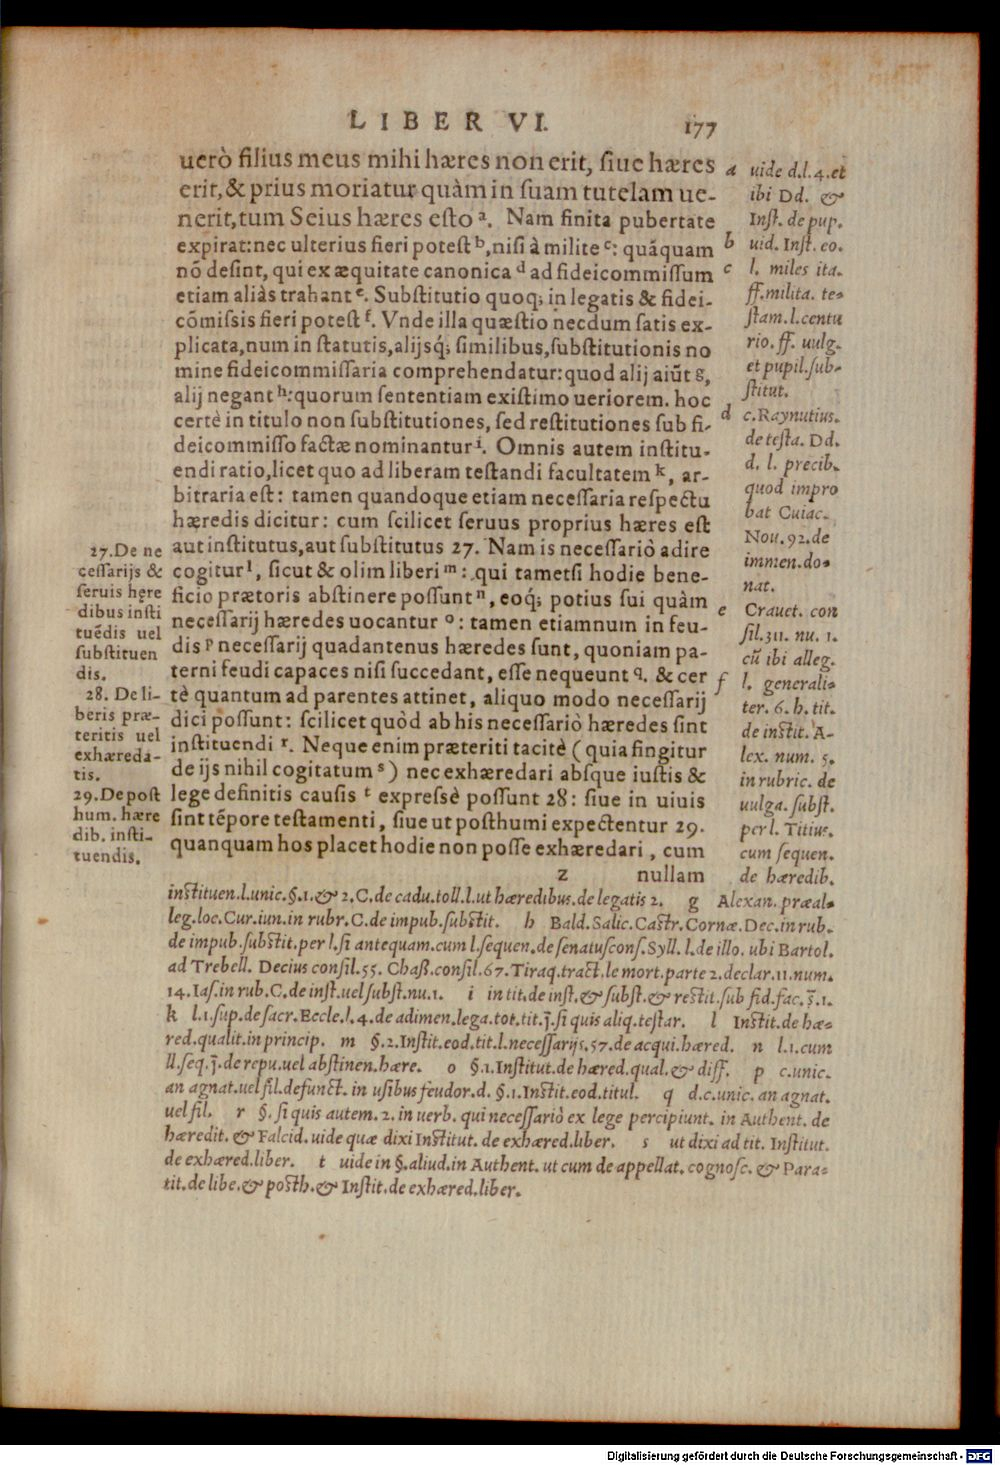 LIBER VI. 177
uerò filius meus mihi hæres non erit, siue hæres
erit, & prius moriatur quàm in suam tutelam ue-
nerit, tum Seius hæres esto ᵃ. Nam finita pubertate
expirat: nec ulterius fieri potest ᵇ, nisi à milite ᶜ: quáquam
nō desint, qui ex æquitate canonica ᵈ ad fideicommissum
etiam aliàs trahant ᵉ. Substitutio quoq; in legatis & fidei-
cōmissis fieri potest ᶠ. Vnde illa quæstio necdum satis ex-
plicata, num in statutis, alijsq́; similibus, substitutionis no
mine fideicommissaria comprehendatur: quod alij aiūt g,
alij negant ʰ: quorum sententiam existimo ueriorem. hoc
certè in titulo non substitutiones, sed restitutiones sub fi-
deicommisso factæ nominantur ⁱ. Omnis autem institu-
endi ratio, licet quo ad liberam testandi facultatem ᵏ, ar-
bitraria est: tamen quandoque etiam necessaria respectu
hæredis dicitur: cum scilicet seruus proprius hæres est
aut institutus, aut substitutus 27. Nam is necessariò adire
cogitur ˡ, sicut & olim liberi ᵐ: qui tametsi hodie bene-
ficio prætoris abstinere possunt ⁿ, eoq́; potius sui quàm
necessarij hæredes uocantur ᵒ: tamen etiamnum in feu-
dis ᵖ necessarij quadantenus hæredes sunt, quoniam pa-
terni feudi capaces nisi succedant, esse nequeunt q. & cer
tè quantum ad parentes attinet, aliquo modo necessarij
dici possunt: scilicet quòd ab his necessariò hæredes sint
instituendi ʳ. Neque enim præteriti tacitè (quia fingitur
de ijs nihil cogitatum ˢ) nec exhæredari absque iustis &
lege definitis causis ᵗ expressè possunt 28: siue in uiuis
sint tēpore testamenti, siue ut posthumi expectentur 29.
quanquam hos placet hodie non posse exhæredari, cum
z nullam
27. De ne
cessarijs &
seruis hęre
dibus insti
tuēdis uel
substituen
dis.
28. De li-
beris præ-
teritis uel
exhæreda-
tis.
29. De post
hum. hære
dib. insti-
tuendis.
a uide d. l. 4. et
ibi Dd. &
Inst. de pup.
b uid. Inst. eo.
c l. miles ita.
ff. milita. te-
stam. l. centu
rio. ff. uulg.
et pupil. sub-
stitut.
d c. Raynutius.
de testa. Dd.
d. l. precib.
quod impro
bat Cuiac.
Nou. 92. de
immen. do-
nat.
e Crauet. con
sil. 311. nu. 1.
cū ibi alleg.
f l. generali-
ter. 6. h. tit.
de instit. A-
lex. num. 5.
in rubric. de
uulga. subst.
per l. Titius.
cum sequen.
de hæredib.
instituen. l. unic. §. 1. & 2. C. de cadu. toll. l. ut hæredibus. de legatis 2. g Alexan. præal-
leg. loc. Cur. iun. in rubr. C. de impub. substit. h Bald. Salic. Castr. Cornæ. Dec. in rub.
de impub. substit. per l. si antequam. cum l. sequen. de senatuscons. Syll. l. de illo. ubi Bartol.
ad Trebell. Decius consil. 55. Chaß. consil. 67. Tiraq. tract. le mort. parte 2. declar. 11. num.
14. Ias. in rub. C. de inst. uel subst. nu. 1. i in tit. de inst. & subst. & restit. sub fid. fac. §. 1.
k l. 1. sup. de sacr. Eccle. l. 4. de adimen. lega. tot. tit. j̄. si quis aliq. testar. l Instit. de hæ-
red. qualit. in princip. m §. 2. Instit. eod. tit. l. necessarijs. 57. de acqui. hæred. n l. 1. cum
ll. seq. j̄. de repu. uel abstinen. hære. o §. 1. Institut. de hæred. qual. & diff. p c. unic.
an agnat. uel fil. defunct. in usibus feudor. d. §. 1. Instit. eod. titul. q d. c. unic. an agnat.
uel fil. r §. si quis autem. 2. in uerb. qui necessariò ex lege percipiunt. in Authent. de
hæredit. & Falcid. uide quæ dixi Institut. de exhæred. liber. s ut dixi ad tit. Institut.
de exhæred. liber. t uide in §. aliud. in Authent. ut cum de appellat. cognosc. & Para-
tit. de libe. & posth. & Instit. de exhæred. liber.
Digitalisierung gefördert durch die Deutsche Forschungsgemeinschaft - DFG